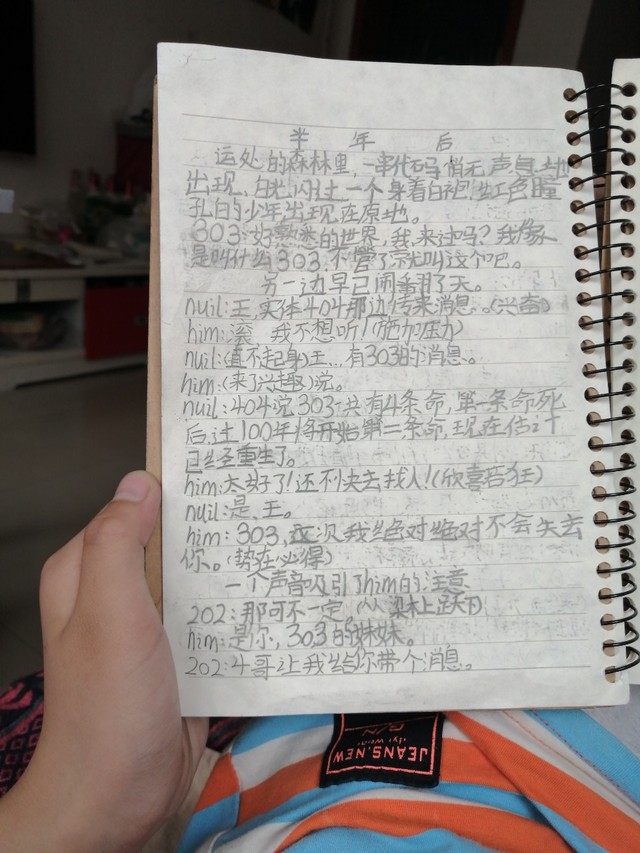 半年后
远处的森林里,一串代码悄无声息地
出现,白光闪过一个身着白袍,红色瞳
孔的少年出现在原地。
303:好熟悉的世界,我来过吗?我好像
是叫什么303,不管了就叫这个吧。
另一边早已闹翻了天。
nuil:王,实体404那边传来消息。(兴奋)
him:滚,我不想听!(施加压力)
nuil:(直不起身)王...有303的消息。
him:(来了兴趣)说。
nuil:404说303共有4条命,第一条命死
后,过100年将开始第二条命,现在
已经重生了。
him:太好了!还不快去找人!(欣喜若狂)
nuil:是,王。
him:303,这次我绝对绝对不会失去
你。(势在必得)
一个声音吸引了him的注意
202:那可不一定。(从树上跃下)
him:是你,303的妹妹。
202:4哥让我给你带个消息。
JEANS.NEW